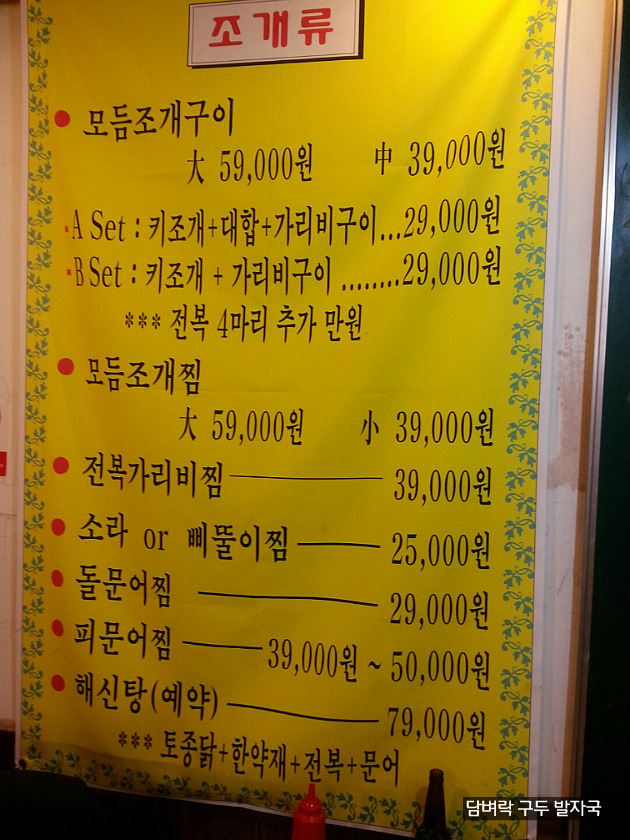 조개류
● 모듬조개구이
大 59,000원 中 39,000원
·A Set : 키조개+대합+가리비구이...29,000원
·B Set : 키조개 + 가리비구이 ........29,000원
*** 전복 4마리 추가 만원
● 모듬조개찜
大 59,000원 小 39,000원
● 전복가리비찜 39,000원
● 소라 or 삐뚤이찜 25,000원
● 돌문어찜 29,000원
● 피문어찜 39,000원 ~ 50,000원
● 해신탕(예약) 79,000원
*** 토종닭+한약재+전복+문어
담벼락 구두 발자국